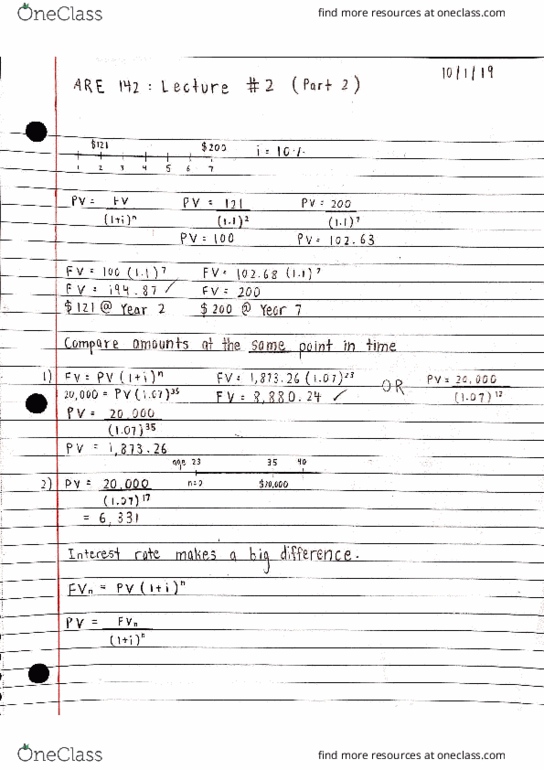 OneClass find more resources at oneclass.com
10/1/19
ARE 142 : Lecture #2 (Part 2)
$121 $200 i = 10%
1 2 3 4 5 6 7
PV = FV PV = 121 PV = 200
(1+i)ⁿ (1.1)² (1.1)⁷
PV = 100 PV = 102.63
FV = 100 (1.1)⁷ FV = 102.68 (1.1)⁷
FV = 194.87 ✓ FV = 200
$121 @ Year 2 $200 @ Year 7
Compare amounts at the same point in time
1) FV = PV (1+i)ⁿ FV = 1,873.26 (1.07)²³ OR PV = 20,000
20,000 = PV (1.07)³⁵ FV = 8,880.24 ✓ (1.07)¹²
PV = 20,000
(1.07)³⁵
PV = 1,873.26
age 23 35 40
2) PV = 20,000 n=0 $20,000
(1.07)¹⁷
= 6,331
Interest rate makes a big difference.
FVₙ = PV (1+i)ⁿ
PV = FVₙ
(1+i)ⁿ
OneClass find more resources at oneclass.com